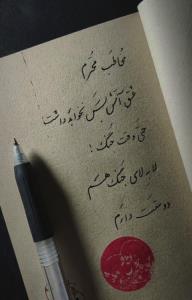 مخاطب محترم
عشق آتش بس نخواهد داشت
حتی وقت جنگ!
لا به لای جنگ هم
دوستت دارم